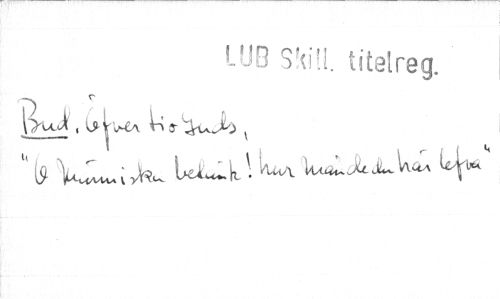 LUB Skill. titelreg.
Bud. Öfver tio Guds,
"O Menniska betänk! hur månde du här lefva"